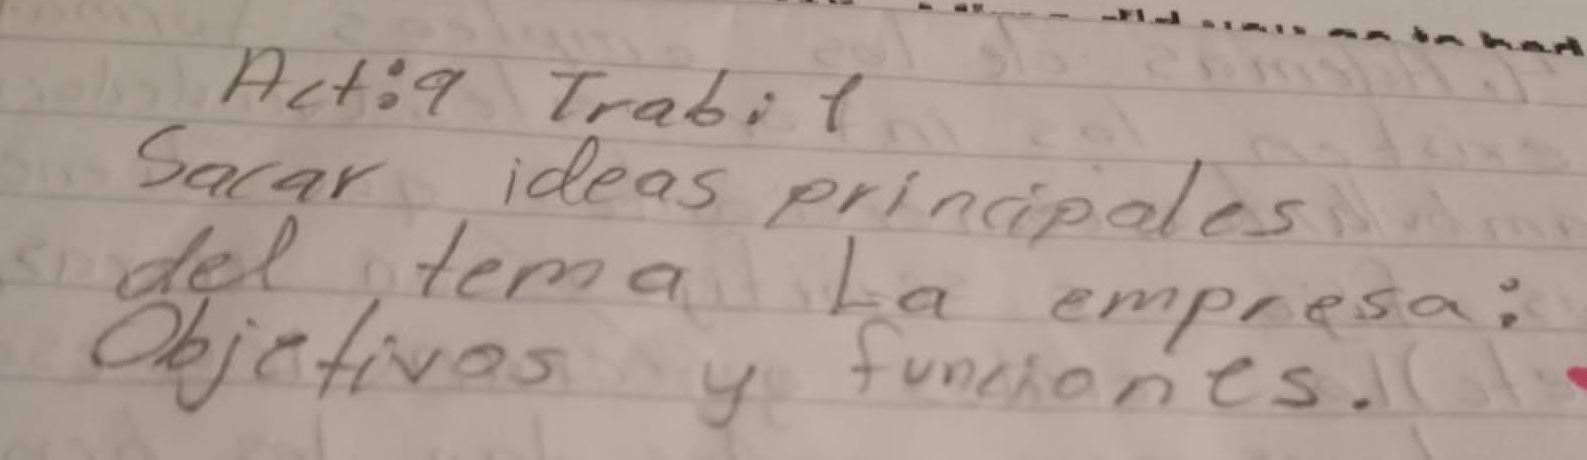 Act:9 Trab:1
Sacar ideas principales
del tema La empresa:
Objetivos y funciones.